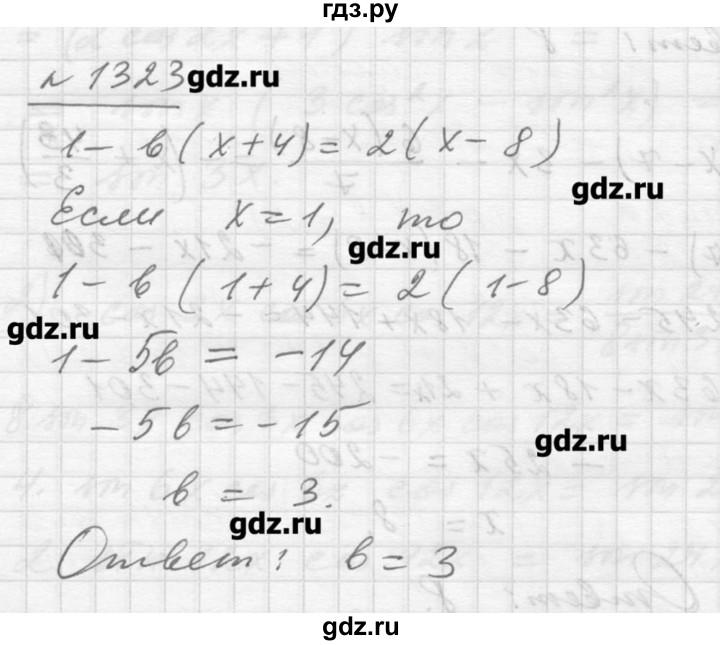 гдз.ру
№ 1323 gdz.ru
1 - в (x + 4) = 2 (x - 8)
gdz.ru
Если x = 1, то
gdz.ru
1 - в (1 + 4) = 2 (1 - 8)
gdz.ru
1 - 5в = -14
-5в = -15
gdz.ru
в = 3.
gdz.ru
Ответ: в = 3
gdz.ru